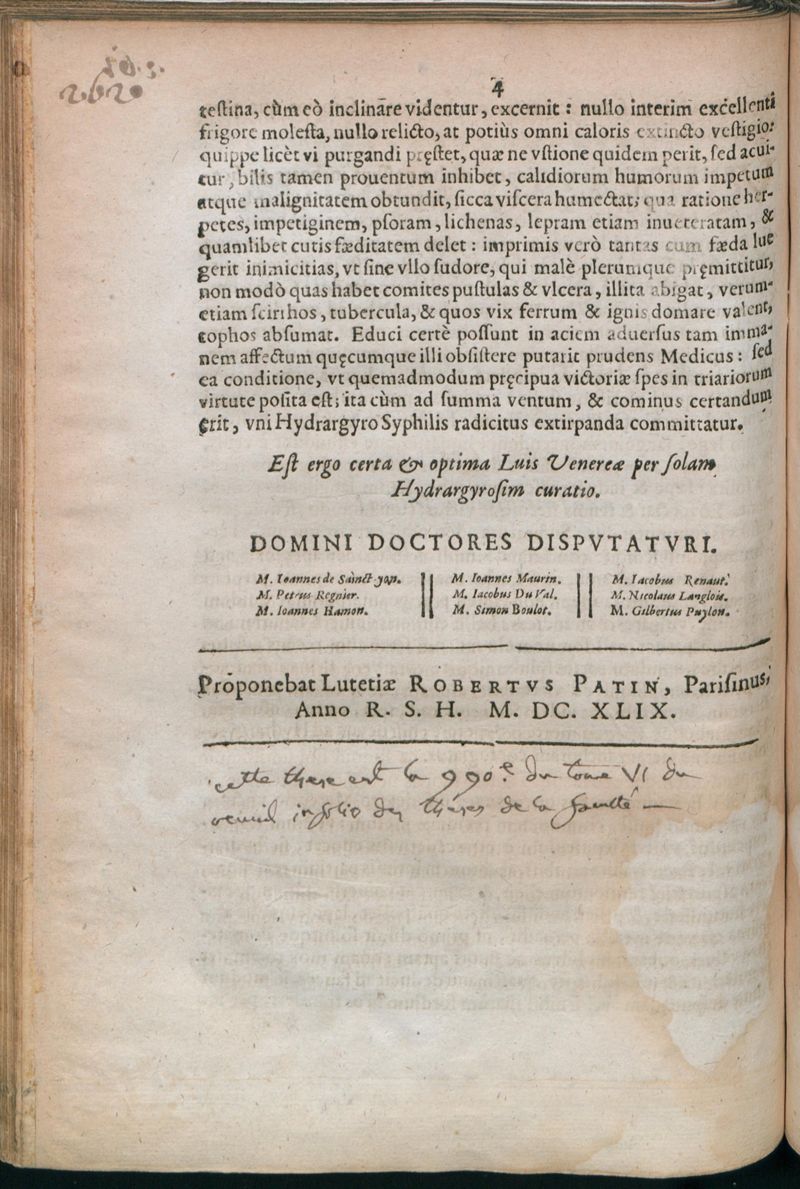 2626
4
testina, cùm eò inclinare videntur, excernit : nullo interim excellenti
frigore molesta, nullo relicto, at potiùs omni caloris extincto vestigio:
quippe licèt vi purgandi pręstet, quæ ne vstione quidem perit, sed acui-
tur, bilis tamen prouentum inhibet, calidiorum humorum impetum
atque malignitatem obtundit, sicca viscera humectat; qua ratione her-
petes, impetiginem, psoram, lichenas, lepram etiam inueteratam, &
quamlibet cutis fæditatem delet : imprimis verò tantas cum fæda lue
gerit inimicitias, vt sine vllo sudore, qui malè plerumque pręmittitur,
non modò quas habet comites pustulas & vlcera, illita abigat, verum-
etiam scirrhos, tubercula, & quos vix ferrum & ignis domare valent,
tophos absumat. Educi certè possunt in aciem aduersus tam imma-
nem affectum quęcumque illi obsistere putarit prudens Medicus : sed
ea conditione, vt quemadmodum pręcipua victoriæ spes in triariorum
virtute posita est; ita cùm ad summa ventum, & cominus certandum
erit, vni Hydrargyro Syphilis radicitus extirpanda committatur.
Est ergo certa & optima Luis Venereæ per solam
Hydrargyrosim curatio.
DOMINI DOCTORES DISPVTATVRI.
M. Ioannes de Sainct-yon. M. Ioannes Maurin. M. Iacobus Renaut.
M. Petrus Regnier. M. Iacobus Du Val. M. Nicolaus Langlois.
M. Ioannes Hamon. M. Simon Boulot. M. Gilbertus Puylon.
Proponebat Lutetiæ ROBERTVS PATIN, Parisinus,
Anno R. S. H. M. DC. XLIX.
cette these est la 990e du tome VI du
recueil infolio des theses de la faculté